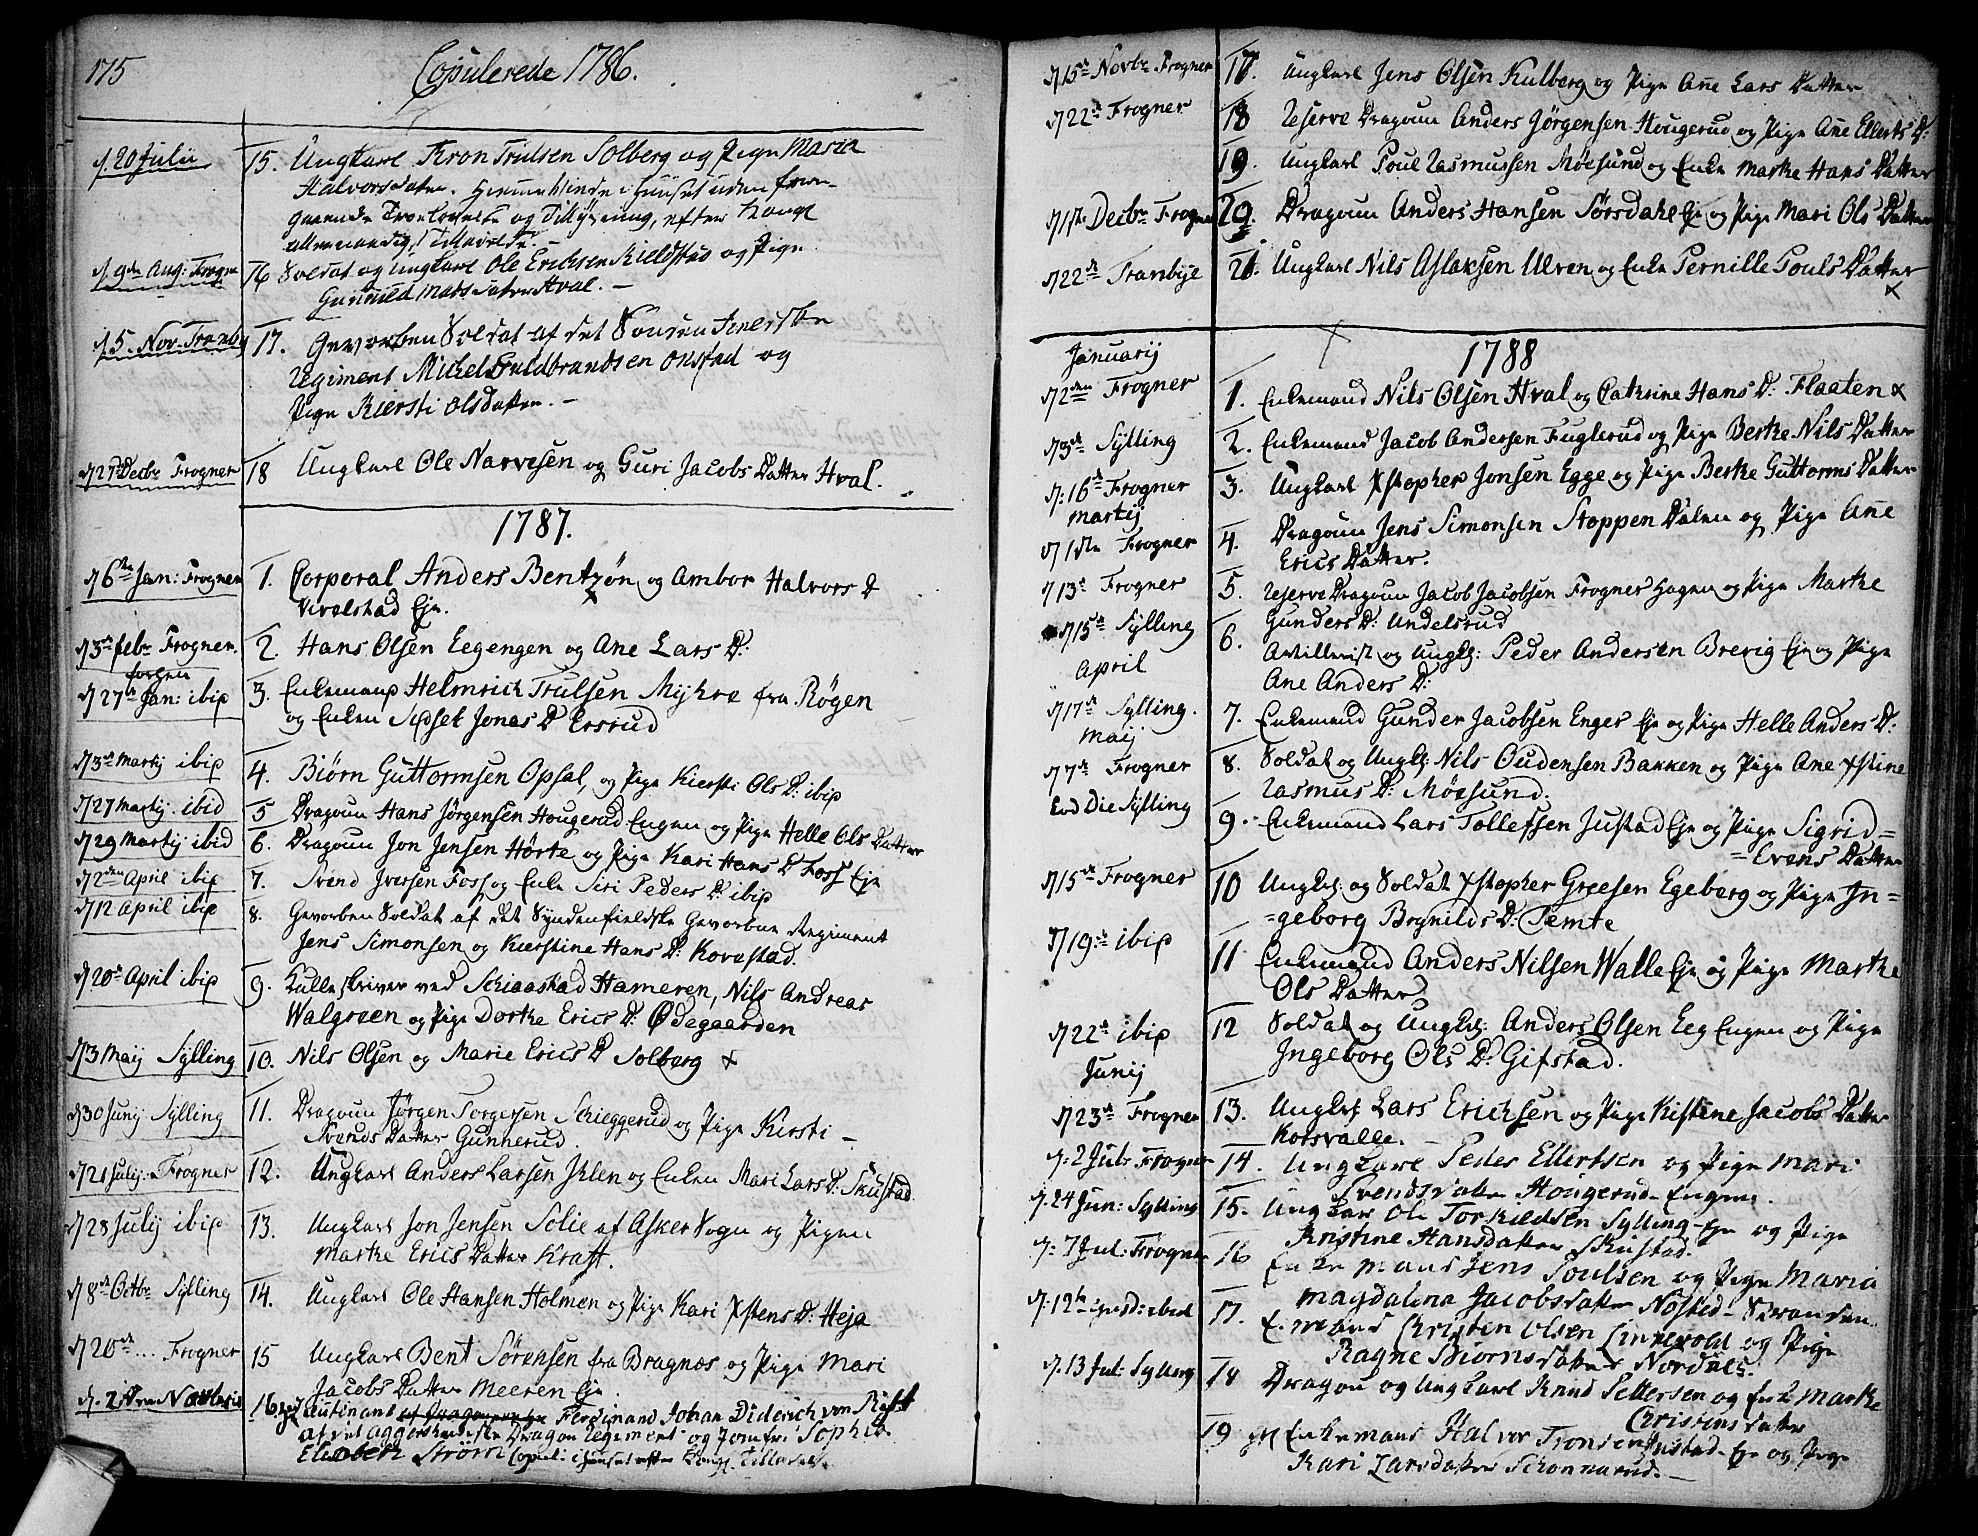 175
Copulerede 1786.
d. 20 Julii 15. Ungkarl Tron Trulsen Solberg og Pige Maria
Halvorsdatter. Hiemmeviede i Huuset uden foregaaende Trolovelse
og Tillysning, efter Kongl
allernaadigst Tilladelse.
d. 9de Aug: Frogne 16 Soldat og ungkarl Ole Erichsen Kieldstad og Pige
Gunnild Matsdatter Hval. –
d. 5. Nov. Tranby 17. Gevorben Soldat af det
Regiment Michel Guldbrandsen Onstad og
Pige Kiersti Olsdatter. –
d 27 Decbr Frogner 18 Ungkarl Ole Narvesen og Guri Jacobs Datter Hval.
1787.
d 6te Jan: Frogner 1. Corporal Anders Bentzøn og Ambor Halvors D
Virelstad Eje.
d 3de febr Frogner. 2. Hans Olsen Eegengen og Ane Lars D:
d 27de Jan: ibid 3. Enkemand Helmrich Trulsen Myhre fra Røgen
og Enken Sidsel Jonas D Ersrud
d 3de Martij ibid 4. Biørn Guttormsen Opsal, og Pige Kiersti Ols D: ibid
d 27 Martij. ibid 5 Dragoun Hans Jørgensen Hougerud Engen og Pige Helle Ols Datter
d 29 Martij ibid 6. Dragoun Jon Jensen Hørte og Pige Kari Hans D Foss Eje
d 2den April ibid 7. Svend Iversen Foss og Enke Siri Peders D: ibid
d 12 April ibid 8. Gevorben Soldat af det Syndenfieldske Gevorbne Regiment
Jens Simonsen og Kierstine Hans D: Kovestad.
d 20de April ibid 9. Kulleskriver ved Schiaastad Hameren, Nils Andreas
Walgreen og Pige Dorthe Erics D: Ødegaarden
d 3 Maij Sylling 10. Nils Olsen og Marie Erics D Solberg x
d 30 Junij Sylling 11. Dragoun Jørgen Torgersen Schieggerud og Pige Kirsti –
Svends Datter Gunnerud.
d 21 Julij. Frogner 12. Ungkarl Anders Larsen Ihlen og Enken Mari Lars D: Skustad.
d 28 Julij ibid 13. Ungkarl Jon Jensen Solie af Asker Sogn og Pigen
Marthe Erics Datter Kraft.
d 8de Octbr Sylling 14. Ungkarl Ole Hansen Holmen og Pige Kari Xstens D: Heja
d 20de ... Frogner 15 Ungkarl Bent Sørensen fra Bragnes og Pige Mari
Jacobs Datter Meeren Eje.
16. Ferdinand Johan Diderich von
af det aggershusiske Dragon Regiment og Jomfru Sophia
Elisabeth Strøm Copul: i Huuset efter Kongl. Tilladelse.
d 15de Novbr Frogner 17. Ungkarl Jens Olsen Kulberg og Pige Ane Lars Datter
d 22de Frogner 18 Reserve Dragoun Anders Jørgensen Hougerud og Pige Ane Ellerts D:
19. Ungkarl Poul Rasmussen Møesund og Enke Marthe Hans Datter
d 1ste Decbr Frogner 20. Dragoun Anders Hansen Sørsdahl Eje og Pige Mari Ols Datter
d 22de Tranbye 21. Ungkarl Nils Aslaksen Ulven og Enke Pernille Pouls Datter
x
1788
Januarij
d 2den Frogner 1. Enkemand Nils Olsen Hval og Cathrine Hans D: Flaaten x
d 3de Sylling 2. Enkemand Jacob Andersen Fuglerud og Pige Berthe Nils Datter
d: 16de Frogner 3. Ungkarl Xstopher Jonsen Egge og Pige Berthe Guttorms Datter
Martij
d 1ste Frogner 4. Dragoun Jens Simonsen Stoppen Dalen og Pige Ane
Erics Datter.
d 13de Frogner 5. Reserve Dragoun Jacob Jacobsen Frogner Hagen og Pige Marthe
Gunders D: Undelsrud
d 15de Sylling 6. Artillerist og Ungk: Peder Andersen Brevig Eje og Pige
Ane Anders D:
April
d 17de Sylling. 7. Enkemand Gunder Jacobsen Enger Eje og Pige Helle Anders D:
Maij
d 7de Frogner 8. Soldat og Ungk: Nils Oudensen Bakken og Pige Ane Xstine
Rasmus D: Møesund.
Eod Die Sylling 9. Enkemand Lars Tollefsen Justad Eje og Pige Sigrid=
=Evens Datter
d 15de Frogner 10 Ungk: og Soldat Xstopher Greesen Egeberg og Pige In=
=geborg Brynilds D: Temte
d 19:de ibid 11 Enkemand Anders Nilsen Walle Eje og Pige Marthe
Ols Datter
d 22de ibid 12 Soldat og Ungk: Anders Olsen Eeg Engen og Pige
Ingeborg Ols D: Gifstad.
Junij
d 23de Frogner 13. Ungk: Lars Erichsen og Pige Kistine Jacobs Datter
Korsvalle. –
d: 2 Jul: Frogner 14. Ungkarl Peder Ellertsen og Pige Mari
Svendsdatter Hougerud-Engen.
d. 24 Jun: Sylling 15. Ungkarl Ole Torkildsen Sylling-Eje og Pige
Kristine Hansdatter Skustad.
d: 7 Jul: Frogner 16 Enkemand Jens Poulsen og Pige Maria
Magdalina Jacobsdatter Nøsted-Stranden.
d: 12te ibid 17. E. mand Christen Olsen Linnevold og Pige
Ragne Biørnsdatter Nordal.
d. 13 Jul: Sylling 18 Dragon og Ungkarl Knud Pettersen og Enke Marthe
Christinsdatter
19 Enkemand Halvor Tronsen Justad-Eje og Pige
Kari Larsdatter Schonnerud. –